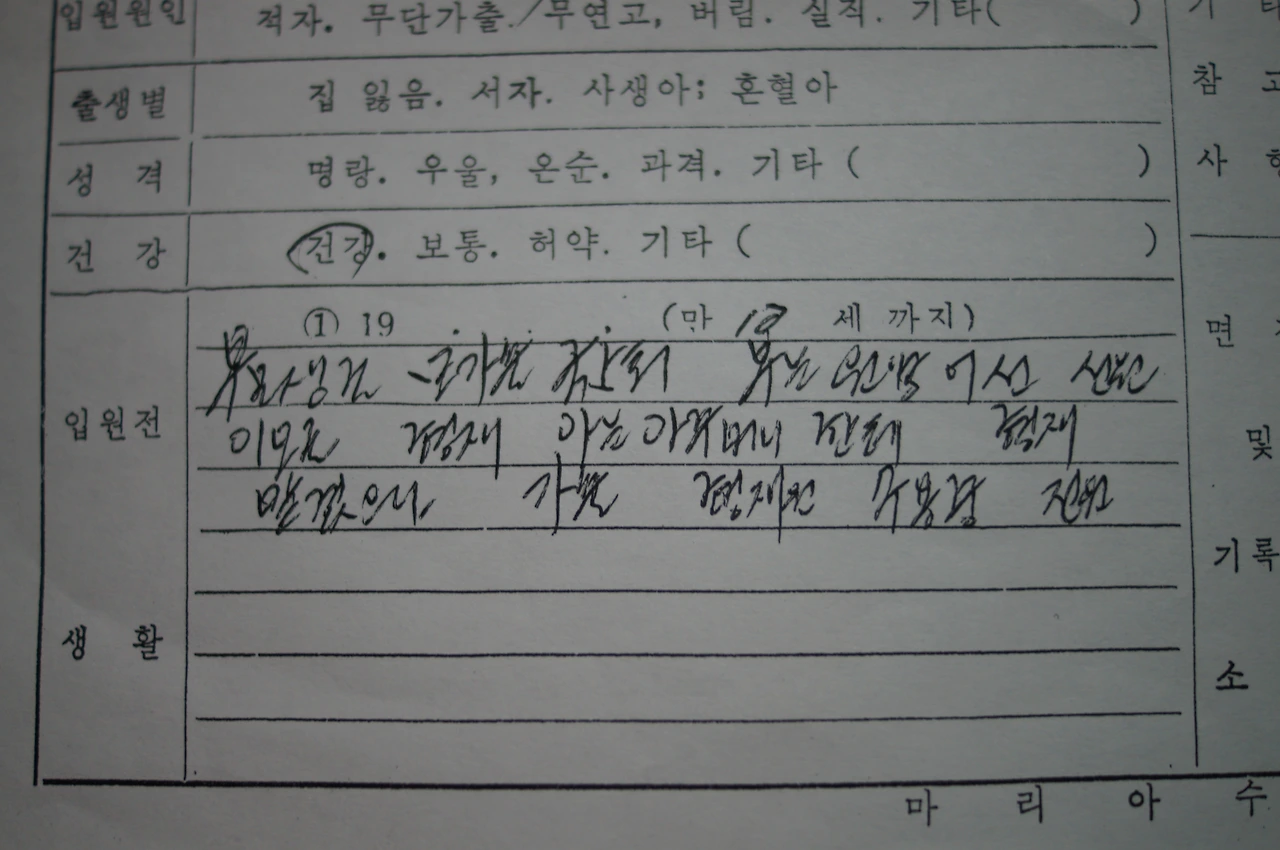 입원원인 적자. 무단가출./무연고, 버림. 실직. 기타( ) 기 타
출생별 집 잃음. 서자. 사생아; 혼혈아 참 고
성 격 명랑. 우울, 온순. 과격. 기타 ( ) 사 항
건 강 건강. 보통. 허약. 기타 ( )
① 19 (만 세 까지) 면
가뿐 부는 어서
입원전 이모 형재 아는 아주머니 한테 형재 및
맡겼으나 가뿐 형재원 수용경 전원
기록
생 활 소
마 리 아 수